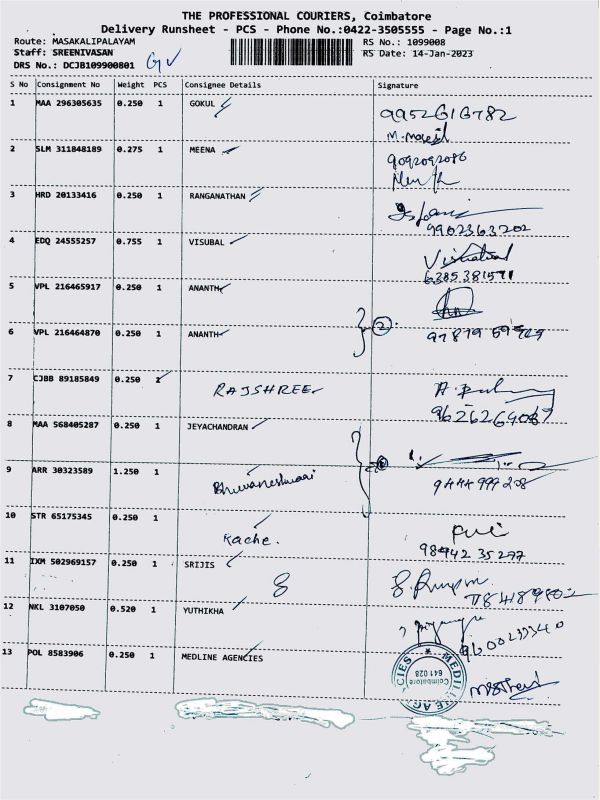 THE PROFESSIONAL COURIERS, Coimbatore
Delivery Runsheet - PCS - Phone No.:0422-3505555 - Page No.:1
Route: MASAKALIPALAYAM RS No.: 1099008
Staff: SREENIVASAN RS Date: 14-Jan-2023
DRS No.: DCJB109900801
S No Consignment No Weight PCS Consignee Details Signature
1 MAA 296305635 0.250 1 GOKUL 9952616782
2 SLM 311848189 0.275 1 MEENA 9092092086
3 HRD 20133416 0.250 1 RANGANATHAN 9902363202
4 EDQ 24555257 0.755 1 VISUBAL
6385381571
5 VPL 216465917 0.250 1 ANANTH
6 VPL 216464870 0.250 1 ANANTH 2
7 CJBB 89185849 0.250 1 RAJSHREE
8 MAA 568405287 0.250 1 JEYACHANDRAN
9 ARR 30323589 1.250 1 Bhuvaneshwari 9444 999 208
10 STR 65175345 0.250 1 Kache.
98942 35277
11 IXM 502969157 0.250 1 SRIJIS
12 NKL 3107050 0.520 1 YUTHIKHA 9600233340
13 POL 8583906 0.250 1 MEDLINE AGENCIES
Coimbatore
641 028